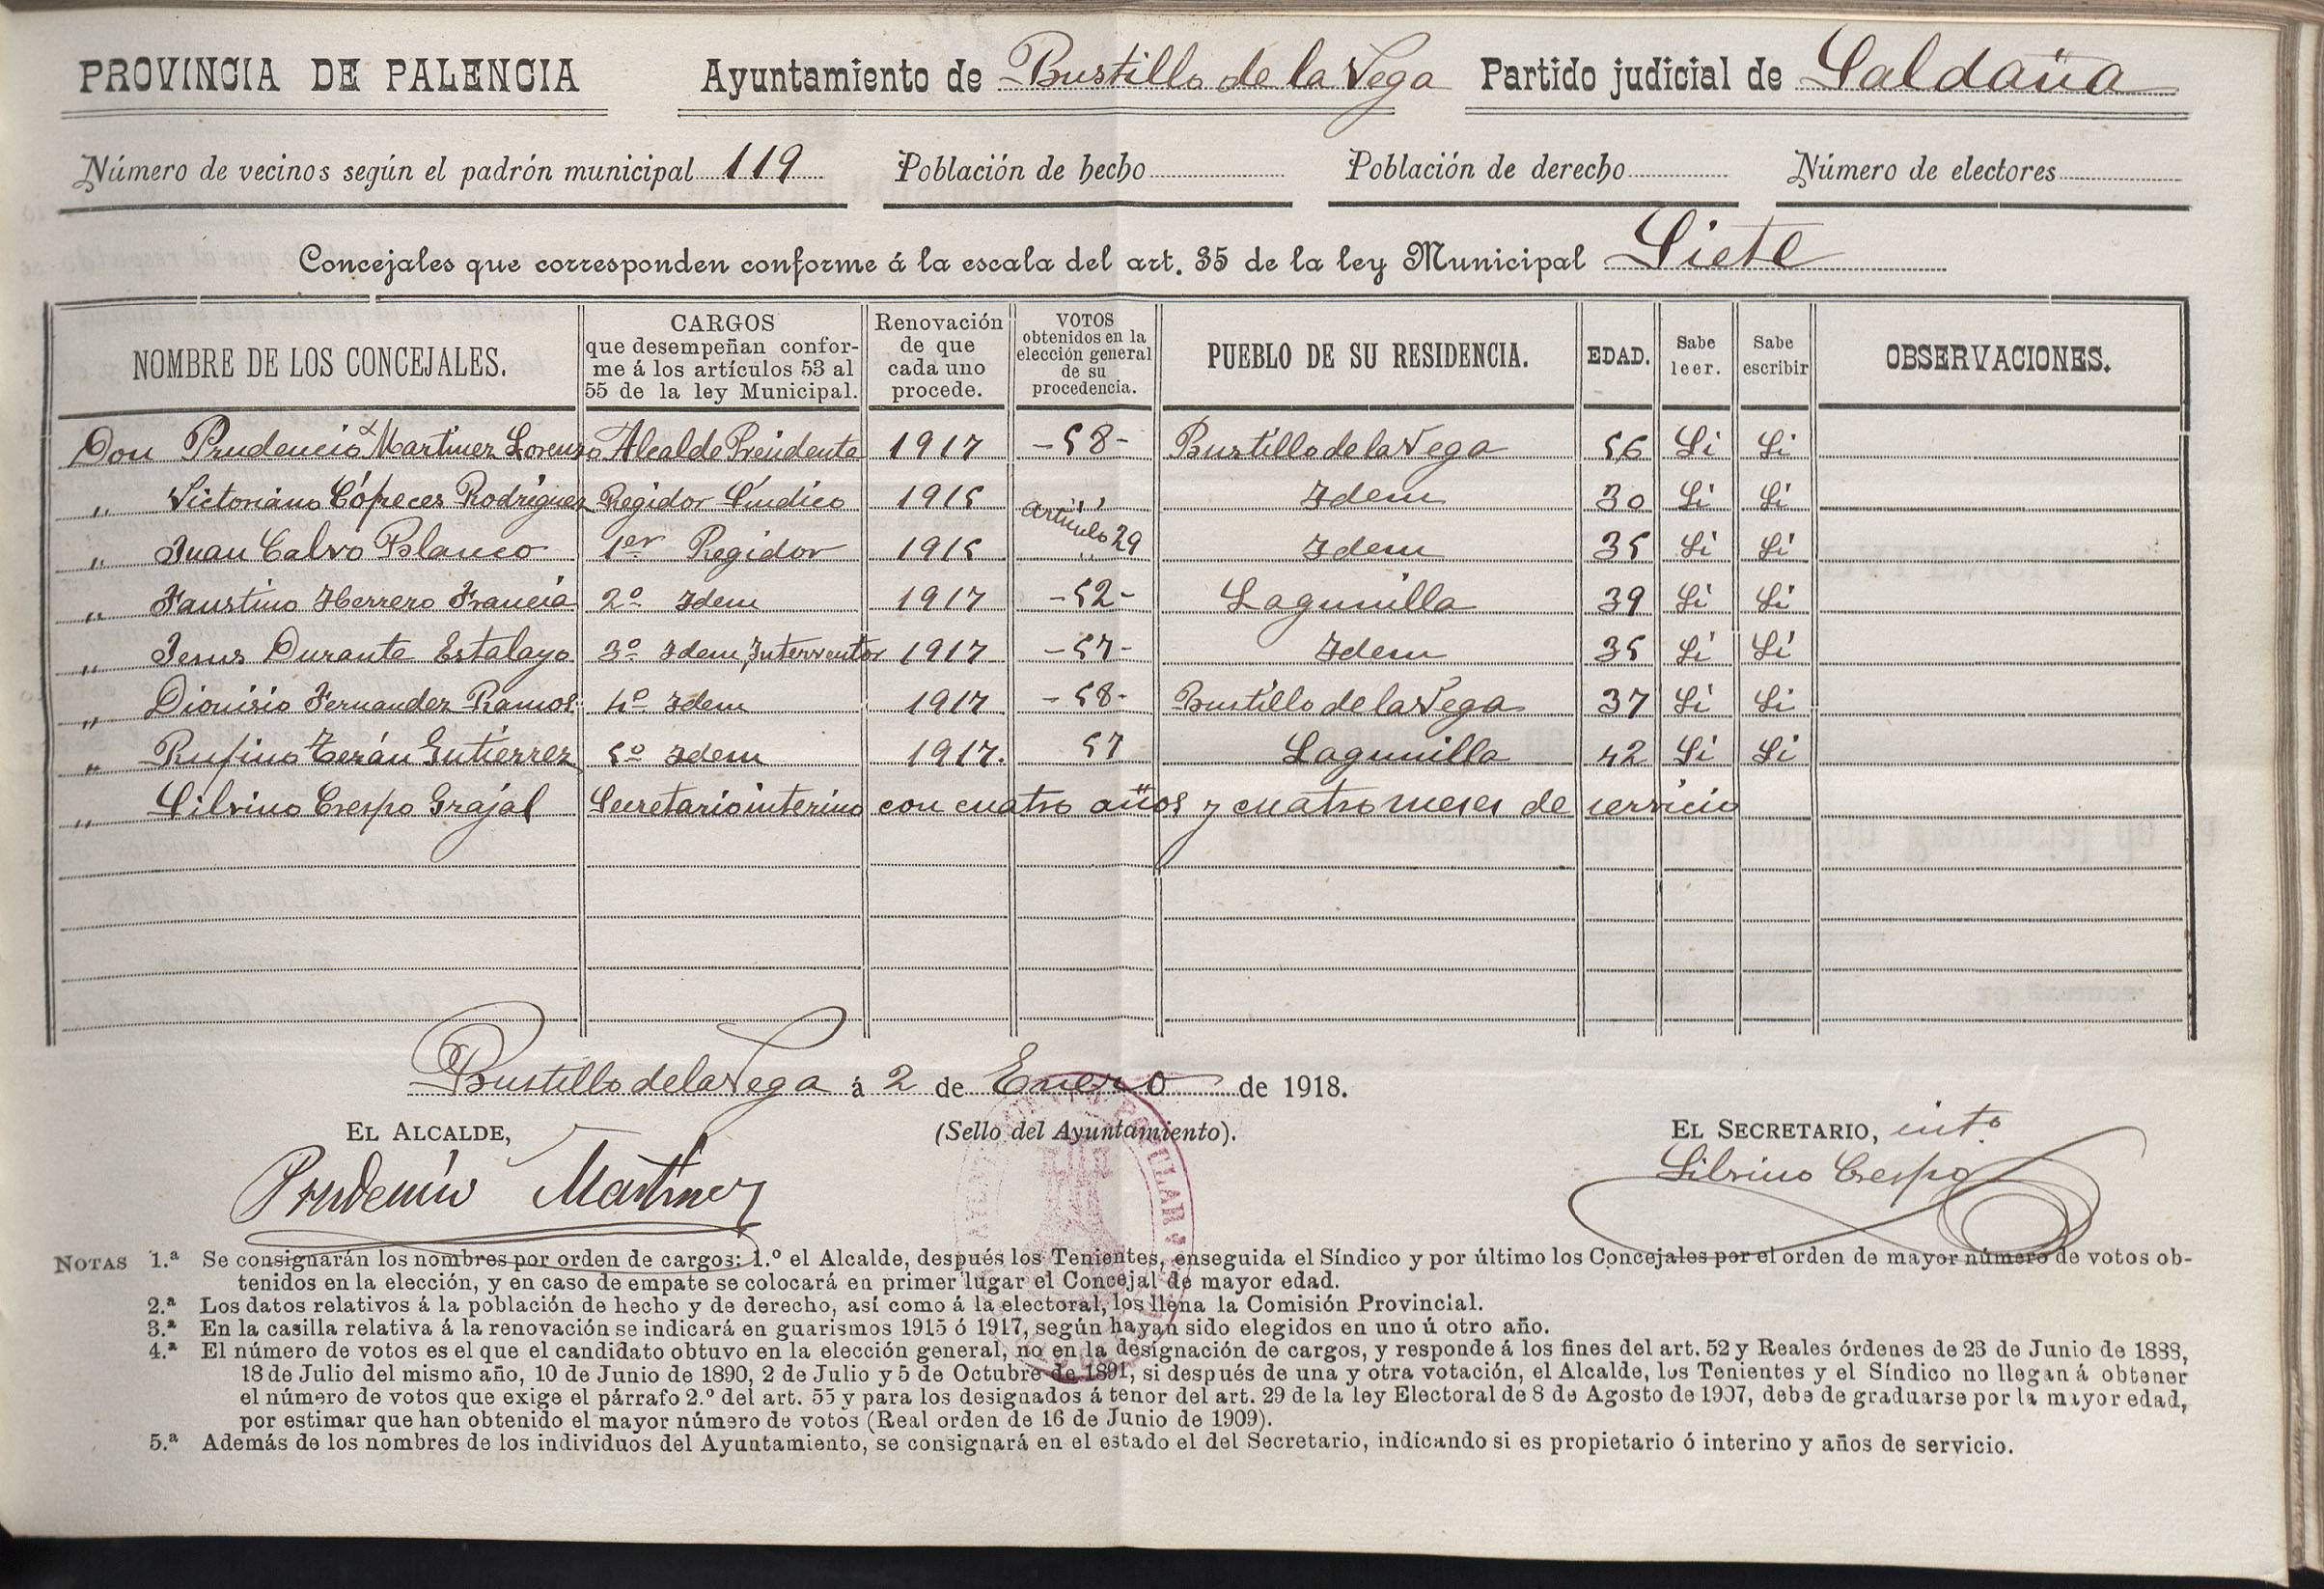 PROVINCIA DE PALENCIA Ayuntamiento de Bustillo de la Vega Partido judicial de Saldaña
Número de vecinos según el padrón municipal 119 Población de hecho Población de derecho Número de electores
Concejales que corresponden conforme á la escala del art. 35 de la ley Municipal Siete
NOMBRE DE LOS CONCEJALES. CARGOS que desempeñan confor- me á los artículos 53 al 55 de la ley Municipal. Renovación de que cada uno procede. VOTOS obtenidos en la elección general de su procedencia. PUEBLO DE SU RESIDENCIA. EDAD. Sabe leer. Sabe escribir OBSERVACIONES.
Don Prudencio Martinez Lorenzo Alcalde Presidente 1917 -58- Bustillo de la Vega 56 Si Si
„ Victoriano Cópeces Rodriguez Regidor Síndico 1915 „ Idem 30 Si Si
„ Juan Calvo Blanco 1er Regidor 1915 Artículo 29 „ Idem 35 Si Si
„ Faustino Herrero Francia 2º Idem 1917 -52- Lagunilla 39 Si Si
„ Jesus Durante Estalayo 3º Idem, Interventor 1917 -57- Idem 35 Si Si
„ Dionisio Fernandez Ramos 4º Idem 1917 -58- Bustillo de la Vega 37 Si Si
„ Rufino Terán Gutierrez 5º Idem 1917. 57 Lagunilla 42 Si Si
„ Silvino Crespo Grajal Secretario interino con cuatro años y cuatro meses de servicio
Bustillo de la Vega á 2 de Enero de 1918.
EL ALCALDE, (Sello del Ayuntamiento). EL SECRETARIO, intº
Prudencio Martinez Silvino Crespo
NOTAS 1.ª Se consignarán los nombres por orden de cargos: 1.º el Alcalde, después los Tenientes, enseguida el Síndico y por último los Concejales por el orden de mayor número de votos ob-
tenidos en la elección, y en caso de empate se colocará en primer lugar el Concejal de mayor edad.
2.ª Los datos relativos á la población de hecho y de derecho, así como á la electoral, los llena la Comisión Provincial.
3.ª En la casilla relativa á la renovación se indicará en guarismos 1915 ó 1917, según hayan sido elegidos en uno ú otro año.
4.ª El número de votos es el que el candidato obtuvo en la elección general, no en la designación de cargos, y responde á los fines del art. 52 y Reales órdenes de 23 de Junio de 1888,
18 de Julio del mismo año, 10 de Junio de 1890, 2 de Julio y 5 de Octubre de 1891, si después de una y otra votación, el Alcalde, los Tenientes y el Síndico no llegan á obtener
el número de votos que exige el párrafo 2.º del art. 55 y para los designados á tenor del art. 29 de la ley Electoral de 8 de Agosto de 1907, debe de graduarse por la mayor edad,
por estimar que han obtenido el mayor número de votos (Real orden de 16 de Junio de 1909).
5.ª Además de los nombres de los individuos del Ayuntamiento, se consignará en el estado el del Secretario, indicando si es propietario ó interino y años de servicio.